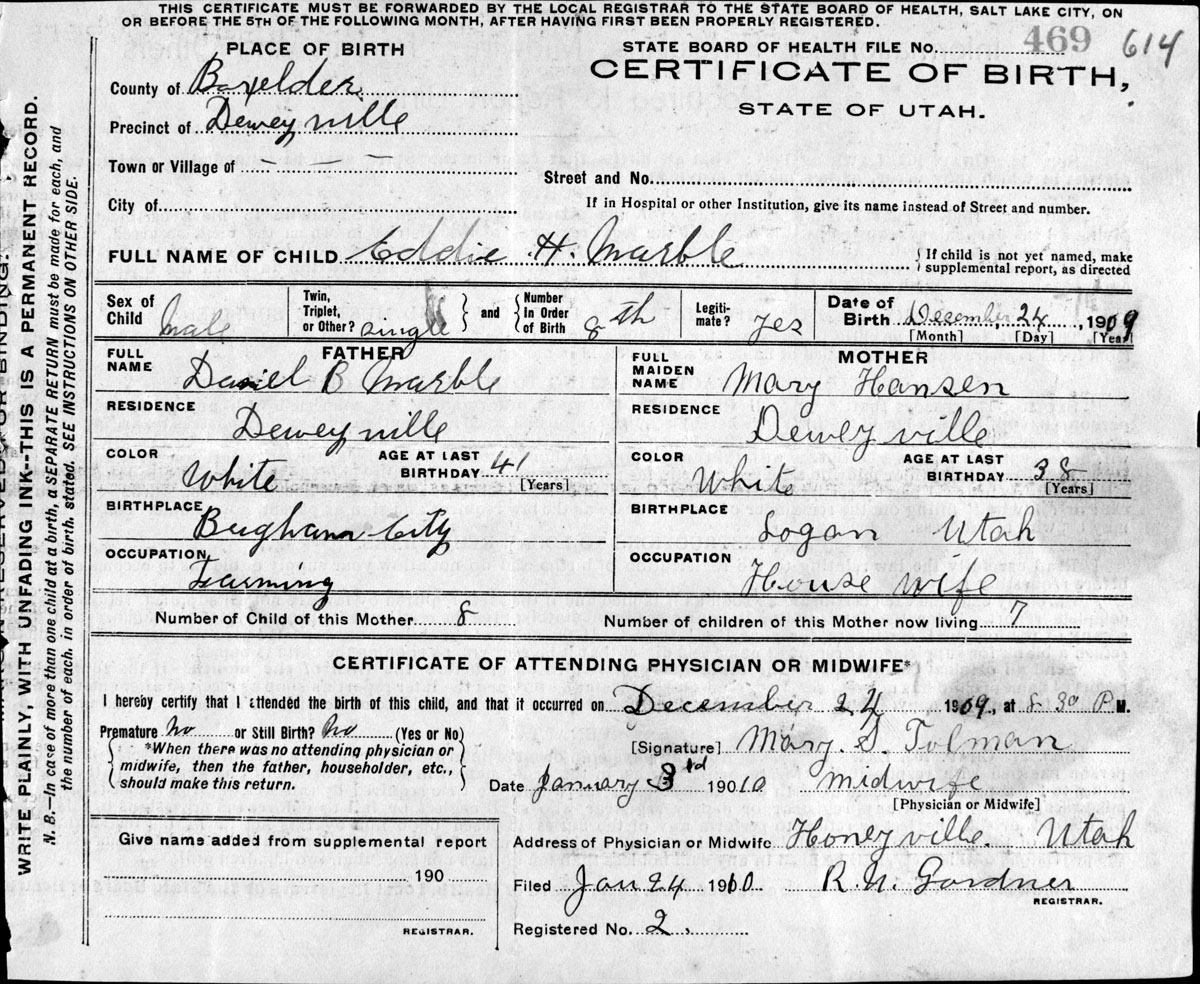 THIS CERTIFICATE MUST BE FORWARDED BY THE LOCAL REGISTRAR TO THE STATE BOARD OF HEALTH, SALT LAKE CITY, ON
OR BEFORE THE 5TH OF THE FOLLOWING MONTH, AFTER HAVING FIRST BEEN PROPERLY REGISTERED.
PLACE OF BIRTH
STATE BOARD OF HEALTH FILE No. 469 614
County of Boxelder
CERTIFICATE OF BIRTH,
STATE OF UTAH.
Precinct of Deweyville
Town or Village of
Street and No.
City of
If in Hospital or other Institution, give its name instead of Street and number.
FULL NAME OF CHILD Eddie H. Marble
If child is not yet named, make
supplemental report, as directed
Sex of Child male
Twin, Triplet, or Other? single and Number In Order of Birth 8th
Legiti-mate? Yes
Date of Birth December 24, 1909
[Month] [Day] [Year]
FATHER
FULL NAME Daniel B Marble
RESIDENCE Deweyville
COLOR White AGE AT LAST BIRTHDAY 41
[Years]
BIRTHPLACE Brigham City
OCCUPATION Farming
MOTHER
FULL MAIDEN NAME Mary Hansen
RESIDENCE Deweyville
COLOR White AGE AT LAST BIRTHDAY 38
[Years]
BIRTHPLACE Logan Utah
OCCUPATION House wife
Number of Child of this Mother 8 Number of children of this Mother now living 7
CERTIFICATE OF ATTENDING PHYSICIAN OR MIDWIFE*
I hereby certify that I attended the birth of this child, and that it occurred on December 24 1909, at 8 30 P M.
Premature? No or Still Birth? No (Yes or No)
*When there was no attending physician or
midwife, then the father, householder, etc.,
should make this return.
[Signature] Mary S. Tolman
Date January 3rd 19010 midwife
[Physician or Midwife]
Give name added from supplemental report
190
REGISTRAR.
Address of Physician or Midwife Honeyville. Utah
Filed Jan 24 1910. R. N. Gardner
REGISTRAR.
Registered No. 2.
WRITE PLAINLY, WITH UNFADING INK--THIS IS A PERMANENT RECORD.
N. B.--In case of more than one child at a birth, a SEPARATE RETURN must be made for each, and
the number of each, in order of birth, stated. SEE INSTRUCTIONS ON OTHER SIDE.